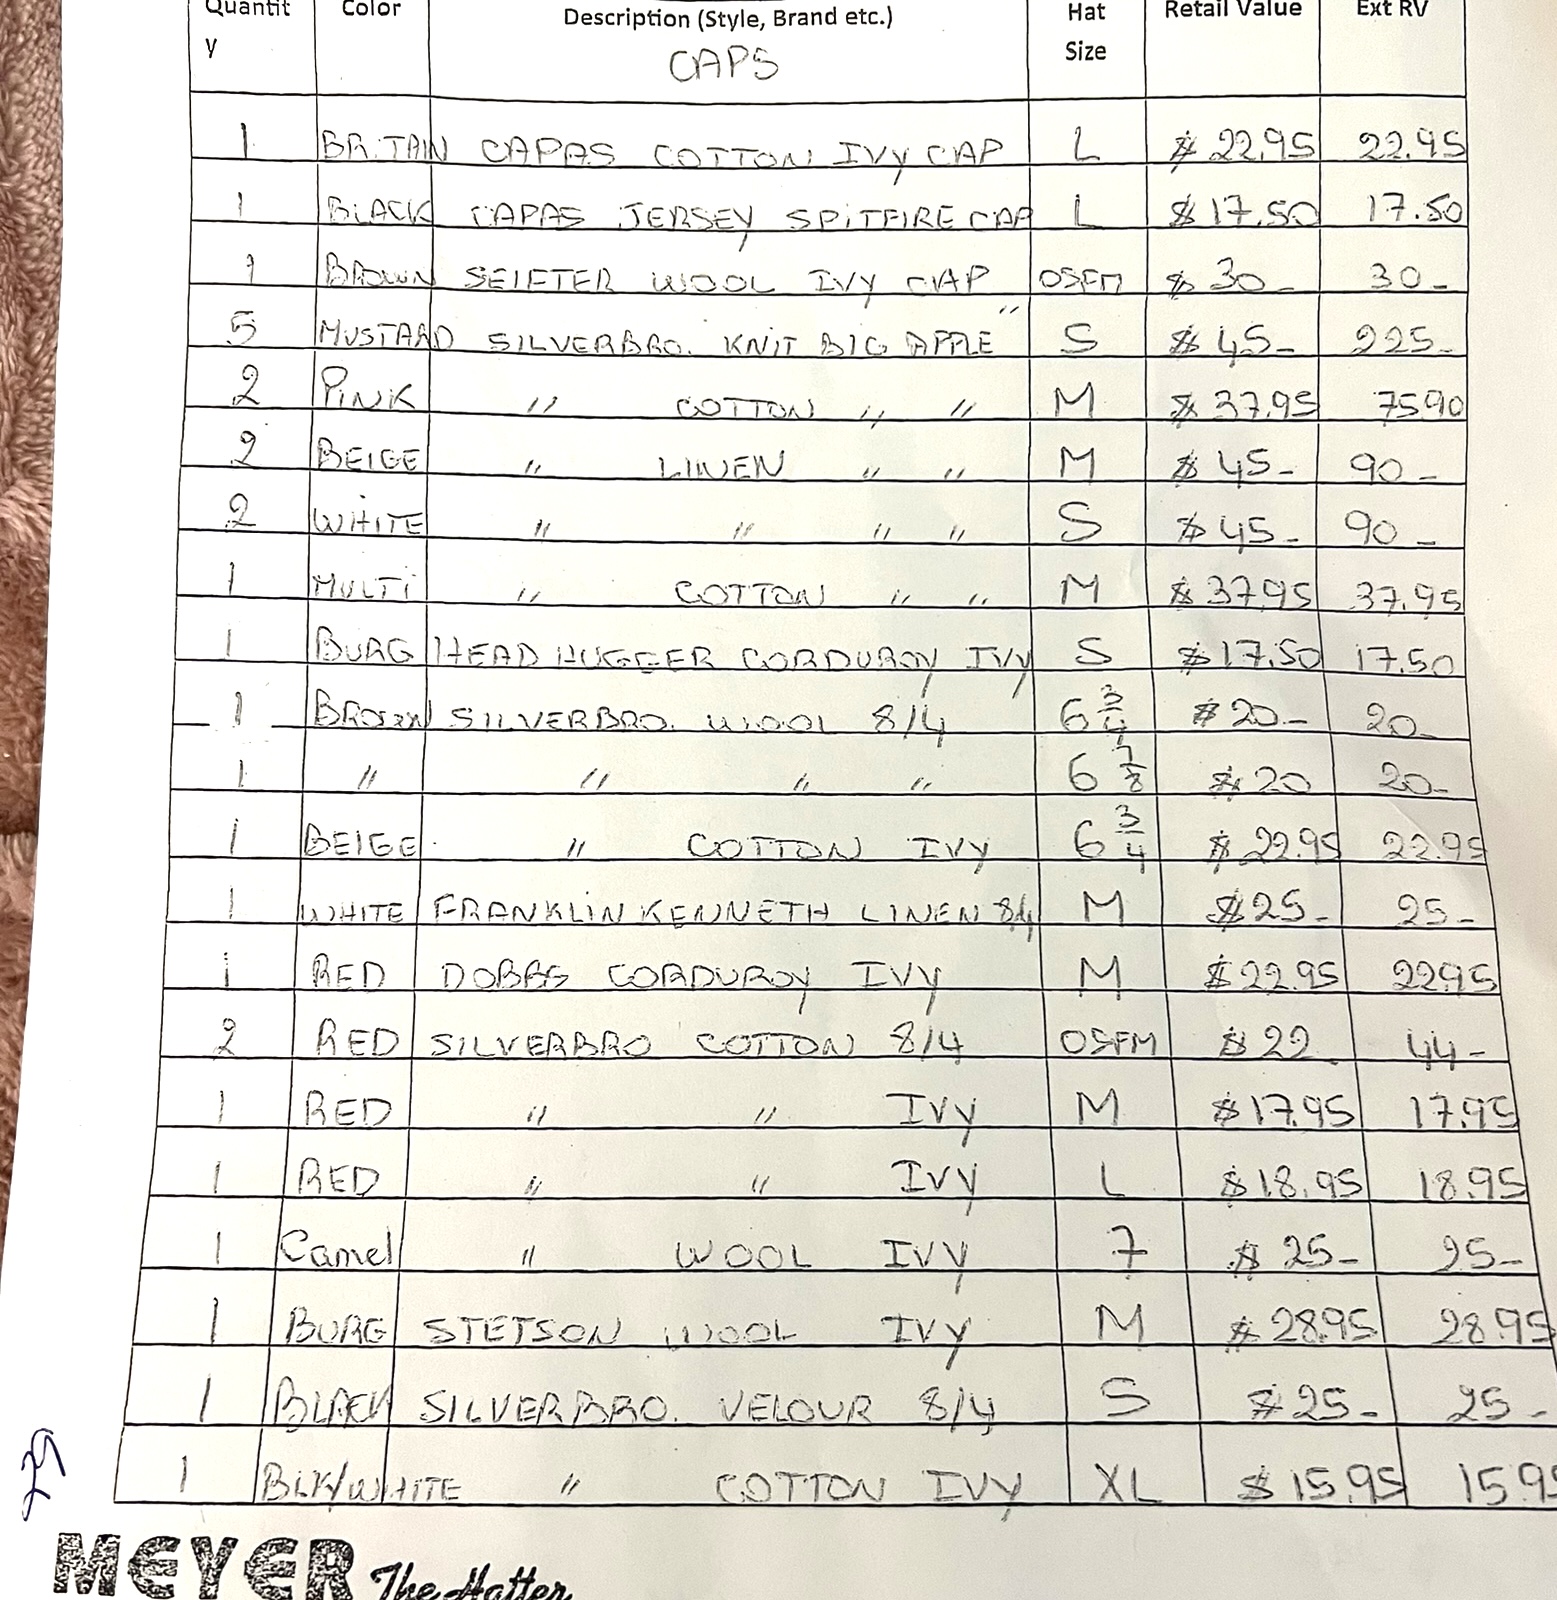 Quantity Color Description (Style, Brand etc.) Hat Size Retail Value Ext RV
CAPS
1 BR.TAN CAPAS COTTON IVY CAP L $22.95 22.95
1 BLACK CAPAS JERSEY SPITFIRE CAP L $17.50 17.50
1 BROWN SEIFTER WOOL IVY CAP OSFM $30- 30-
5 MUSTARD SILVERBRO. KNIT BIG APPLE " S $45- 225-
2 PINK " COTTON " " M $37.95 75.90
2 BEIGE " LINEN " " M $45- 90-
2 WHITE " " " " S $45- 90-
1 MULTI " COTTON " " M $37.95 37.95
1 BURG HEAD HUGGER CORDUROY IVY S $17.50 17.50
1 BROWN SILVERBRO. WOOL 8/4 6 3/4 $20- 20-
1 " " " " 6 7/8 $20 20-
1 BEIGE " COTTON IVY 6 3/4 $22.95 22.95
1 WHITE FRANKLIN KENNETH LINEN 8/4 M $25- 25-
1 RED DOBBS CORDUROY IVY M $22.95 22.95
2 RED SILVERBRO COTTON 8/4 OSFM $22- 44-
1 RED " " IVY M $17.95 17.95
1 RED " " IVY L $18.95 18.95
1 Camel " WOOL IVY 7 $25- 25-
1 BURG STETSON WOOL IVY M $28.95 28.95
1 BLACK SILVERBRO. VELOUR 8/4 S $25- 25-
1 BLK/WHITE " COTTON IVY XL $15.95 15.95
MEYER The Hatter